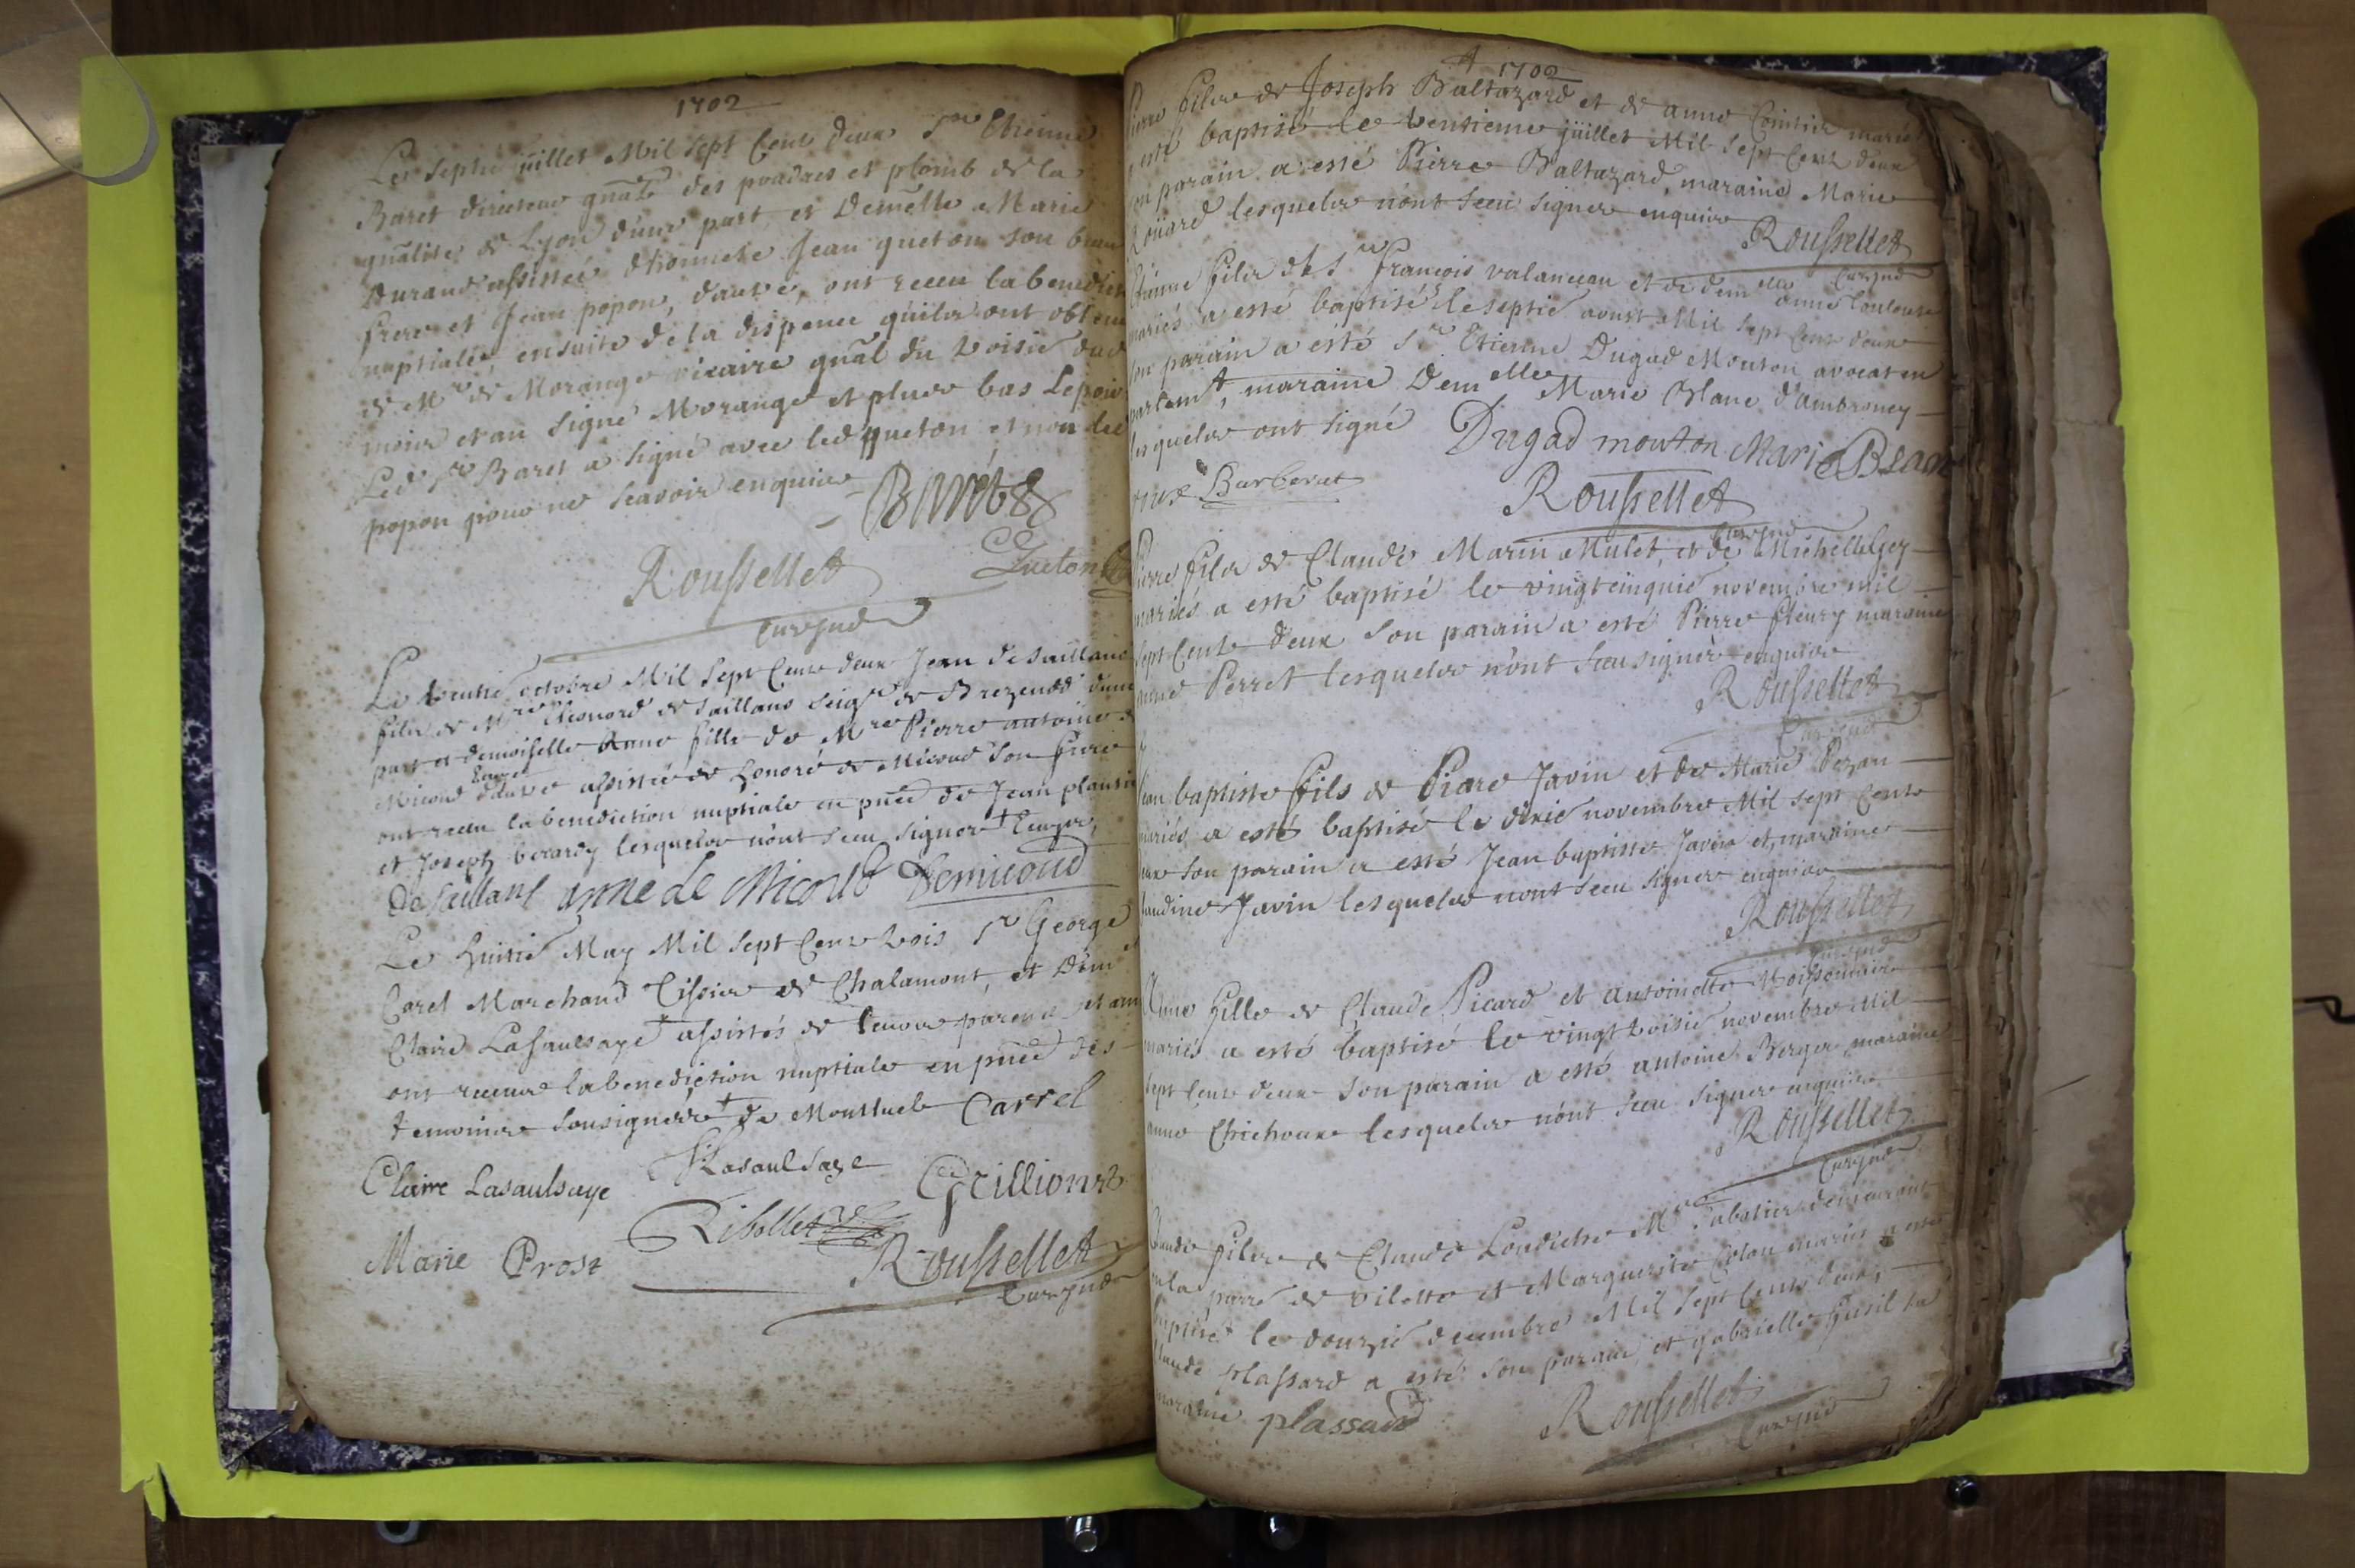 1702
Le septie juillet Mil sept Cent deux Sr Etienne
Baret directeur gnãl des poudres et plomb de la
gnãlité de Lyon d'une part et Demelle Marie
Durand assistée d'honneste Jean queton son beau
frere et Jean popon, d'autre, ont receu la benedicõn
nuptiale ensuite de la dispence quils ont obtenu
de Mr de Morange vicaire gnãl du
mois et an signé Morange et plus bas
Led Sr Baret a signé avec led queton et non led
popon pour ne scavoir enquis
Baret
queton
Roussellet
Curé
Le trentie octobre Mil sept Cent deux Jean de Saillans
fils de Mre Eleonord de Saillans seigr de Brezenod d'une
part et demoiselle Anne fille de Mre Pierre antoine de
Micoud d'autre assistée de honoré de Micoud son frere
ont receu la benediction nuptiale en pñce de Jean
et Joseph berardy lesquels n'ont sceu signer
De Saillans anne de Micoud Demicoud
Le huitié May Mil sept Cent trois Sr George
Carel Marchand Tissier de Chalamont, et Demlle
Claire Lasaulsaye assistés de leurs parens et am
ont receu la benediction nuptiale en pñce des
temoins sousignés de Montluel Carrel
Claire Lasaulsaye Lasaulsaye Grillionet
Marie Prost Ribollet Roussellet
Curé
1702
Pierre fils de Joseph Baltazard et de anne Cointier mariés
a esté baptisé le trentieme juillet Mil Sept Cent deux
son parain a esté Pierre Baltazard, maraine Marie
Roüard lesquels n'ont sceu signer enquis
Roussellet
Curé
Etienne fils de Sr François valancean et de demelle anne Coulouse
mariés a esté baptisé le septie aoust Mil sept Cent deux
son parain a esté Sr Etienne Dugad Mouton avocat en
parlemt, maraine Demelle Marie Blanc d'ambroney
lesquels ont signé Dugad mouton Marie Blanc
Barberat Roussellet
Curé
Pierre fils de Claude Marin Mulet, et de Michelle Gey
mariés a esté baptisé le vingtcinquié novembre mil
sept Cents deux son parain a esté Pierre fleury maraine
anne Perret lesquels n'ont sceu signer enquis
Roussellet
Curé
Jean baptiste fils de Piare Javin et de Marie Pezan
mariés a esté baptisé le dixié novembre Mil sept Cents
deux son parain a esté Jean baptiste Javin et, maraine
Claudine Javin lesquels n'ont sceu signer enquis
Roussellet
Curé
Anne fille de Claude Picard et antoinette Moissonnier
mariés a esté baptisé le vingt troisié novembre Mil
sept Cent deux son parain a esté antoine Berger maraine
anne Chichoux lesquels n'ont sceu signer enquis
Roussellet
Curé
Claude fils de Claude Londiche Mre Sabotier demeurant
en la parr de vilette et Marguerite Colan mariés a esté
baptisé le douzié decembre Mil sept Cents deux,
Claude plassard a esté son parain et gabrielle Gusil sa
maraine plassard Roussellet
Curé